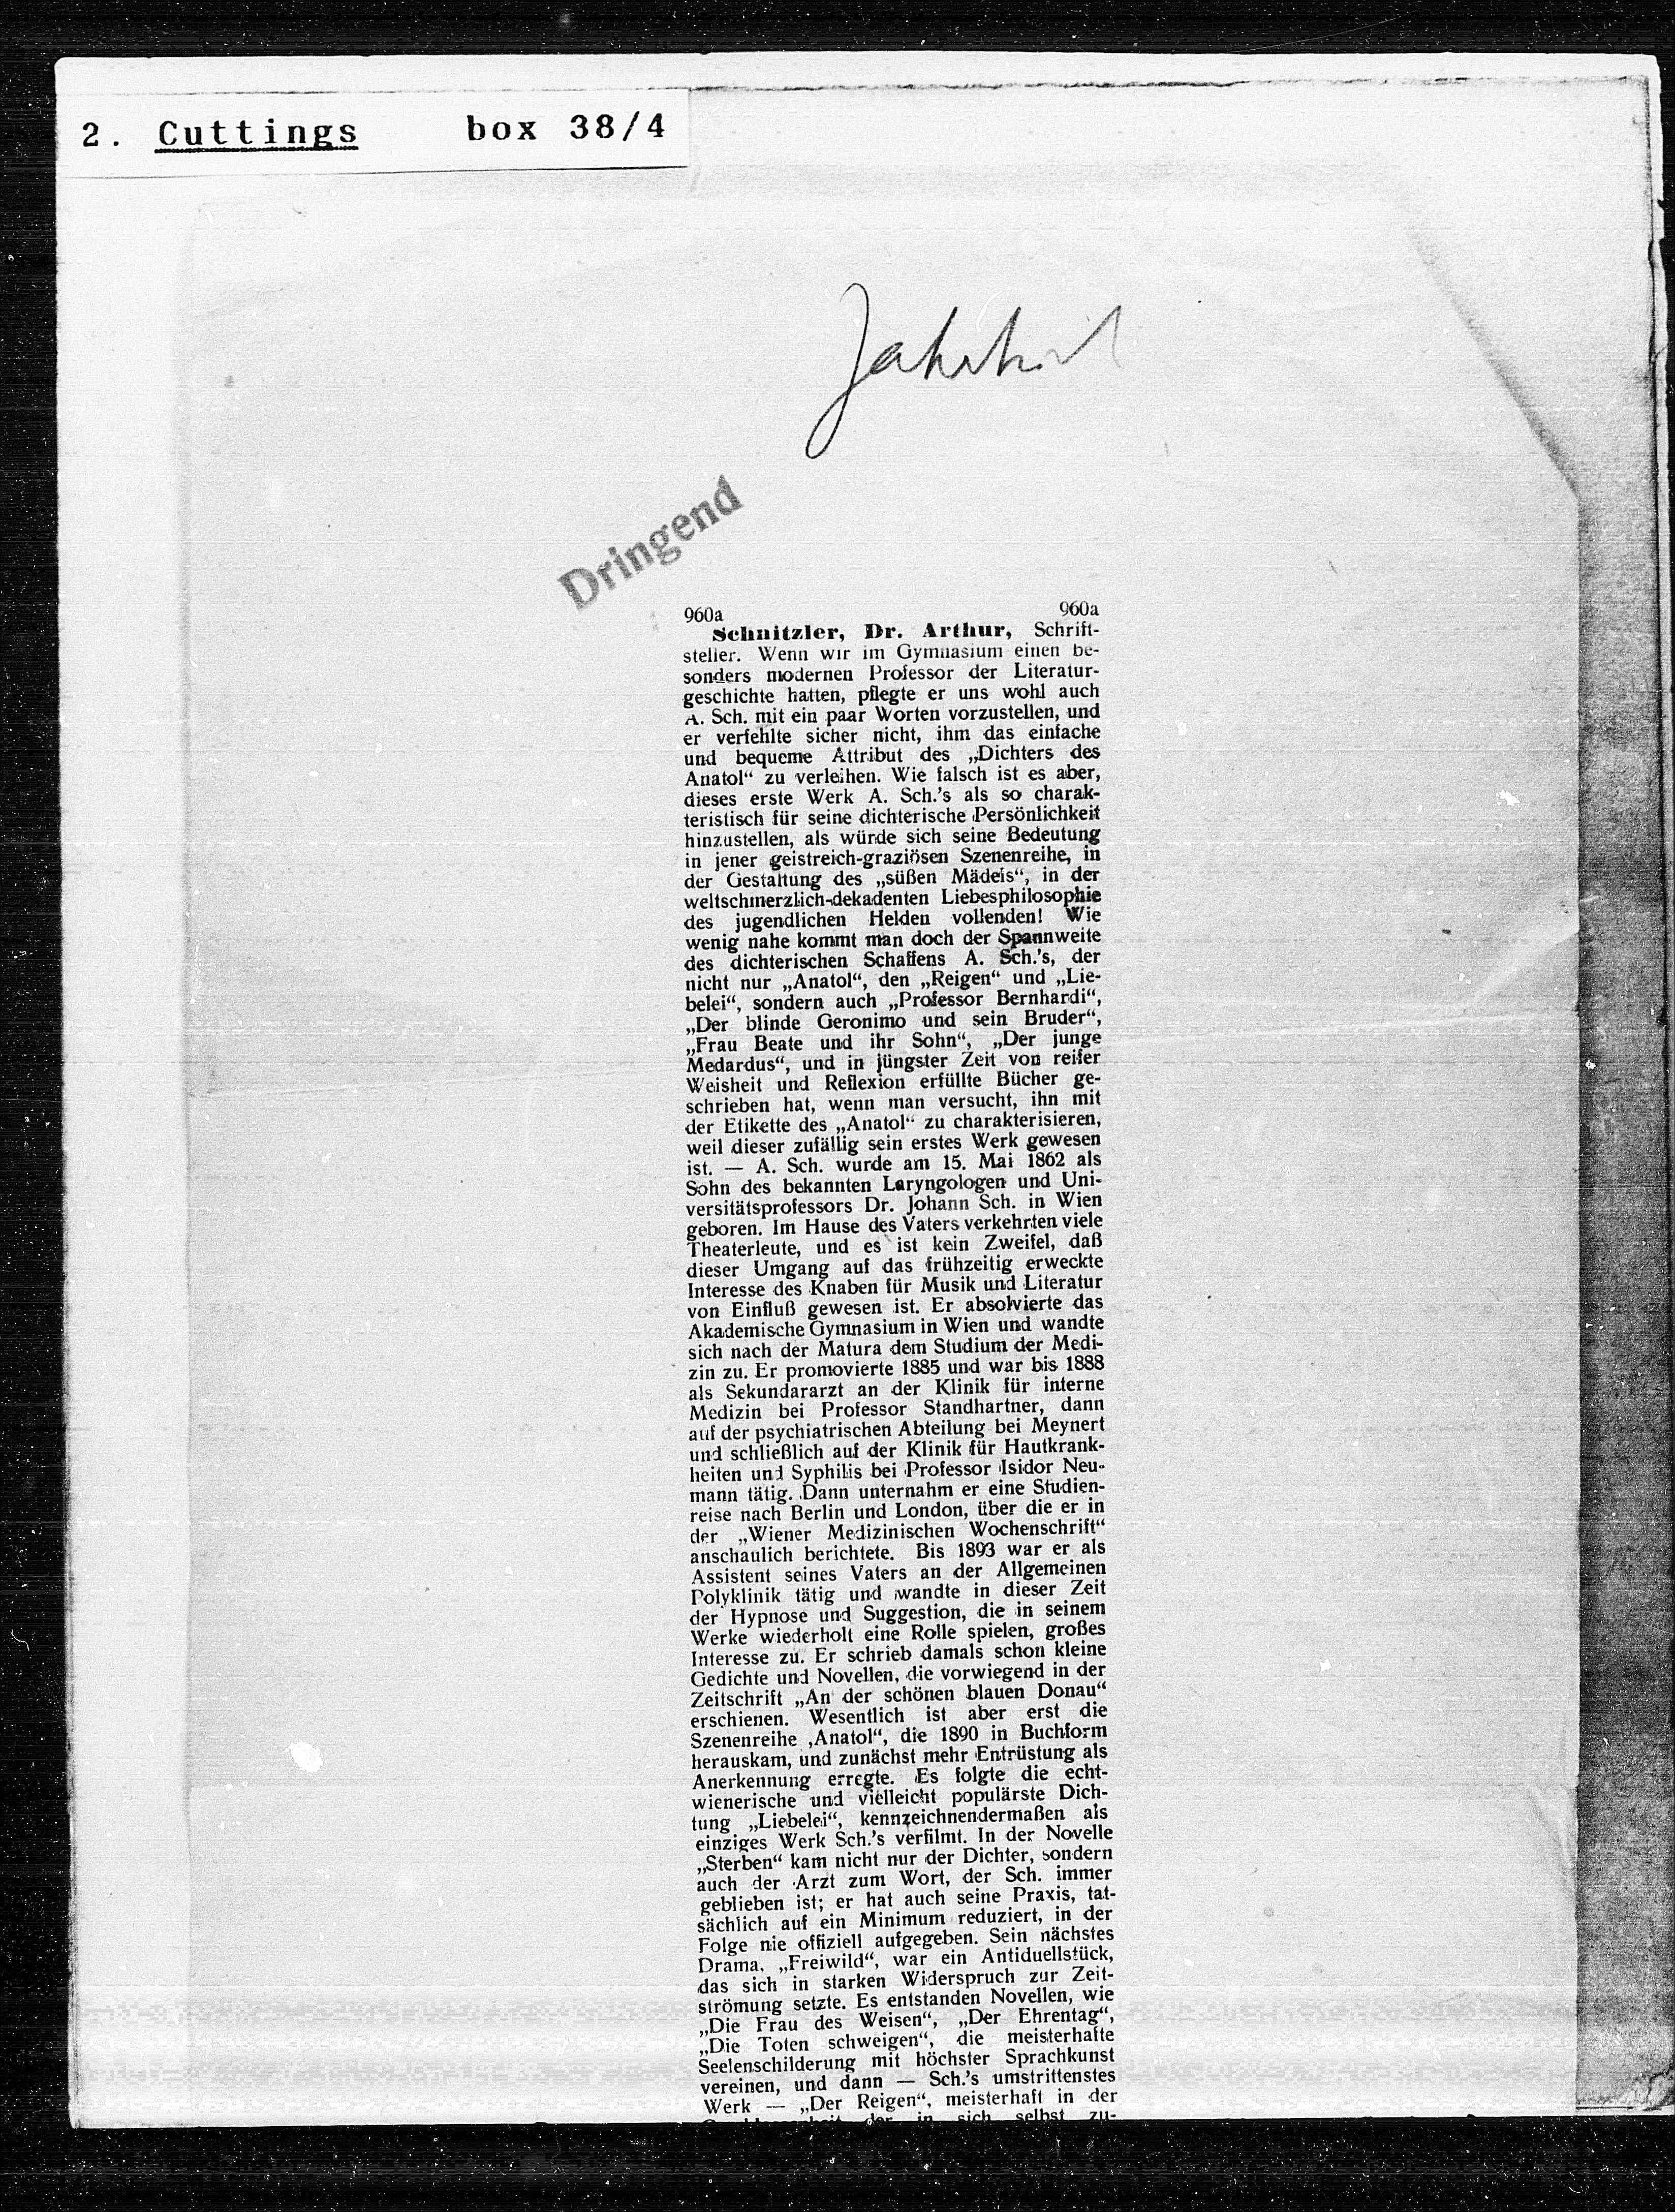 2. Cuttings box 38/4
Dringend
960a 960a
Schnitzler, Dr. Arthur, Schrift-
steller. Wenn wir im Gymnasium einen be-
sonders modernen Professor der Literatur-
geschichte hatten, pflegte er uns wohl auch
A. Sch. mit ein paar Worten vorzustellen, und
er verfehlte sicher nicht, ihm das einfache
und bequeme Attribut des „Dichters des
Anatol“ zu verleihen. Wie falsch ist es aber,
dieses erste Werk A. Sch.'s als so charak-
teristisch für seine dichterische Persönlichkeit
hinzustellen, als würde sich seine Bedeutung
in jener geistreich-graziösen Szenenreihe, in
der Gestaltung des „süßen Mädels“, in der
weltschmerzlich-dekadenten Liebesphilosophie
des jugendlichen Helden vollenden! Wie
wenig nahe kommt man doch der Spannweite
des dichterischen Schaffens A. Sch.'s, der
nicht nur „Anatol“, den „Reigen“ und „Lie-
belei“, sondern auch „Professor Bernhardi“,
„Der blinde Geronimo und sein Bruder“,
„Frau Beate und ihr Sohn“, „Der junge
Medardus“, und in jüngster Zeit von reifer
Weisheit und Reflexion erfüllte Bücher ge-
schrieben hat, wenn man versucht, ihn mit
der Etikette des „Anatol“ zu charakterisieren,
weil dieser zufällig sein erstes Werk gewesen
ist. — A. Sch. wurde am 15. Mai 1862 als
Sohn des bekannten Laryngologen und Uni-
versitätsprofessors Dr. Johann Sch. in Wien
geboren. Im Hause des Vaters verkehrten viele
Theaterleute, und es ist kein Zweifel, daß
dieser Umgang auf das frühzeitig erweckte
Interesse des Knaben für Musik und Literatur
von Einfluß gewesen ist. Er absolvierte das
Akademische Gymnasium in Wien und wandte
sich nach der Matura dem Studium der Medi-
zin zu. Er promovierte 1885 und war bis 1888
als Sekundararzt an der Klinik für interne
Medizin bei Professor Standhartner, dann
auf der psychiatrischen Abteilung bei Meynert
und schließlich auf der Klinik für Hautkrank-
heiten und Syphilis bei Professor Isidor Neu-
mann tätig. Dann unternahm er eine Studien-
reise nach Berlin und London, über die er in
der „Wiener Medizinischen Wochenschrift“
anschaulich berichtete. Bis 1893 war er als
Assistent seines Vaters an der Allgemeinen
Polyklinik tätig und wandte in dieser Zeit
der Hypnose und Suggestion, die in seinem
Werke wiederholt eine Rolle spielen, großes
Interesse zu. Er schrieb damals schon kleine
Gedichte und Novellen, die vorwiegend in der
Zeitschrift „An der schönen blauen Donau“
erschienen. Wesentlich ist aber erst die
Szenenreihe ‚Anatol“, die 1890 in Buchform
herauskam, und zunächst mehr Entrüstung als
Anerkennung erregte. Es folgte die echt-
wienerische und vielleicht populärste Dich-
tung „Liebelei“, kennzeichnendermaßen als
einziges Werk Sch.'s verfilmt. In der Novelle
„Sterben“ kam nicht nur der Dichter, sondern
auch der Arzt zum Wort, der Sch. immer
geblieben ist; er hat auch seine Praxis, tat-
sächlich auf ein Minimum reduziert, in der
Folge nie offiziell aufgegeben. Sein nächstes
Drama, „Freiwild“, war ein Antiduellstück,
das sich in starken Widerspruch zur Zeit-
strömung setzte. Es entstanden Novellen, wie
„Die Frau des Weisen“, „Der Ehrentag“,
„Die Toten schweigen“, die meisterhafte
Seelenschilderung mit höchster Sprachkunst
vereinen, und dann — Sch.'s umstrittenstes
Werk — „Der Reigen“, meisterhaft in der
der in sich selbst zu-